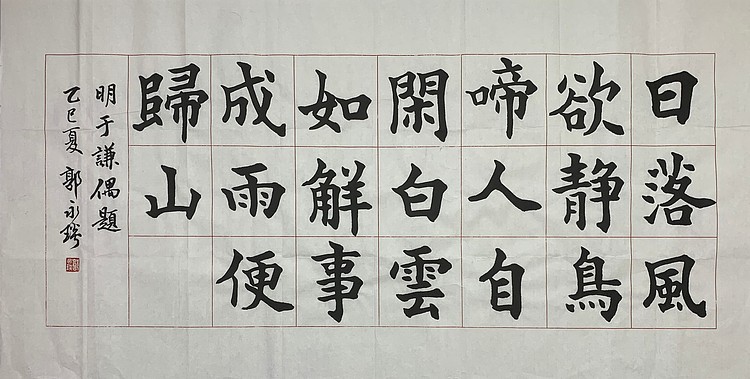 日落風
欲静鳥
啼人自
閑白雲
如解事
成雨便
歸山
明于謙偶題
乙巳夏 郭永